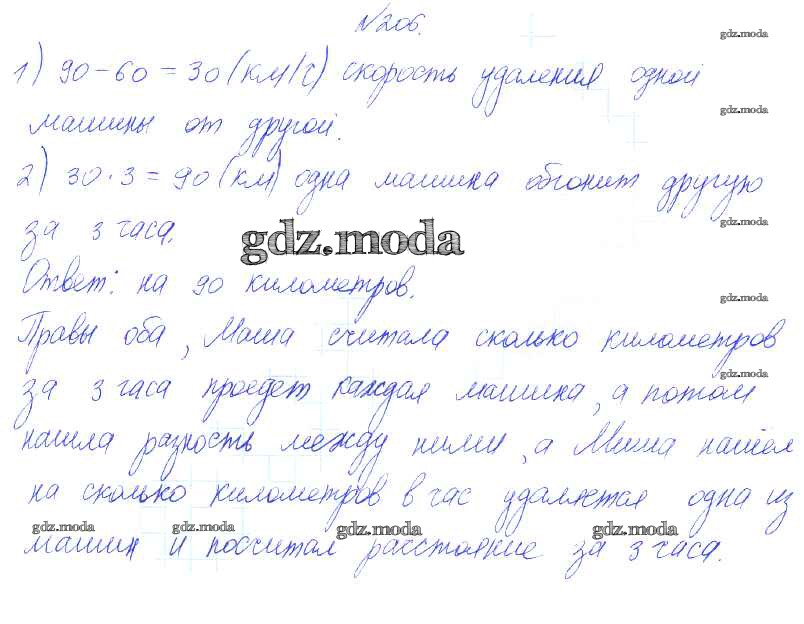 №206.
gdz.moda
1) 90-60=30(км/ч) скорость удаления одной
gdz.moda
машины от другой.
2) 30·3=90(км) одна машина обгонит другую
gdz.moda
за 3 часа.
gdz.moda
Ответ: на 90 километров.
gdz.moda
Правы оба, Маша считала сколько километров
gdz.moda
за 3 часа проедет каждая машина, а потом
нашла разность между ними, а Миша нашёл
на сколько километров в час удаляется одна из
gdz.moda gdz.moda gdz.moda gdz.moda
машин и посчитал расстояние за 3 часа.